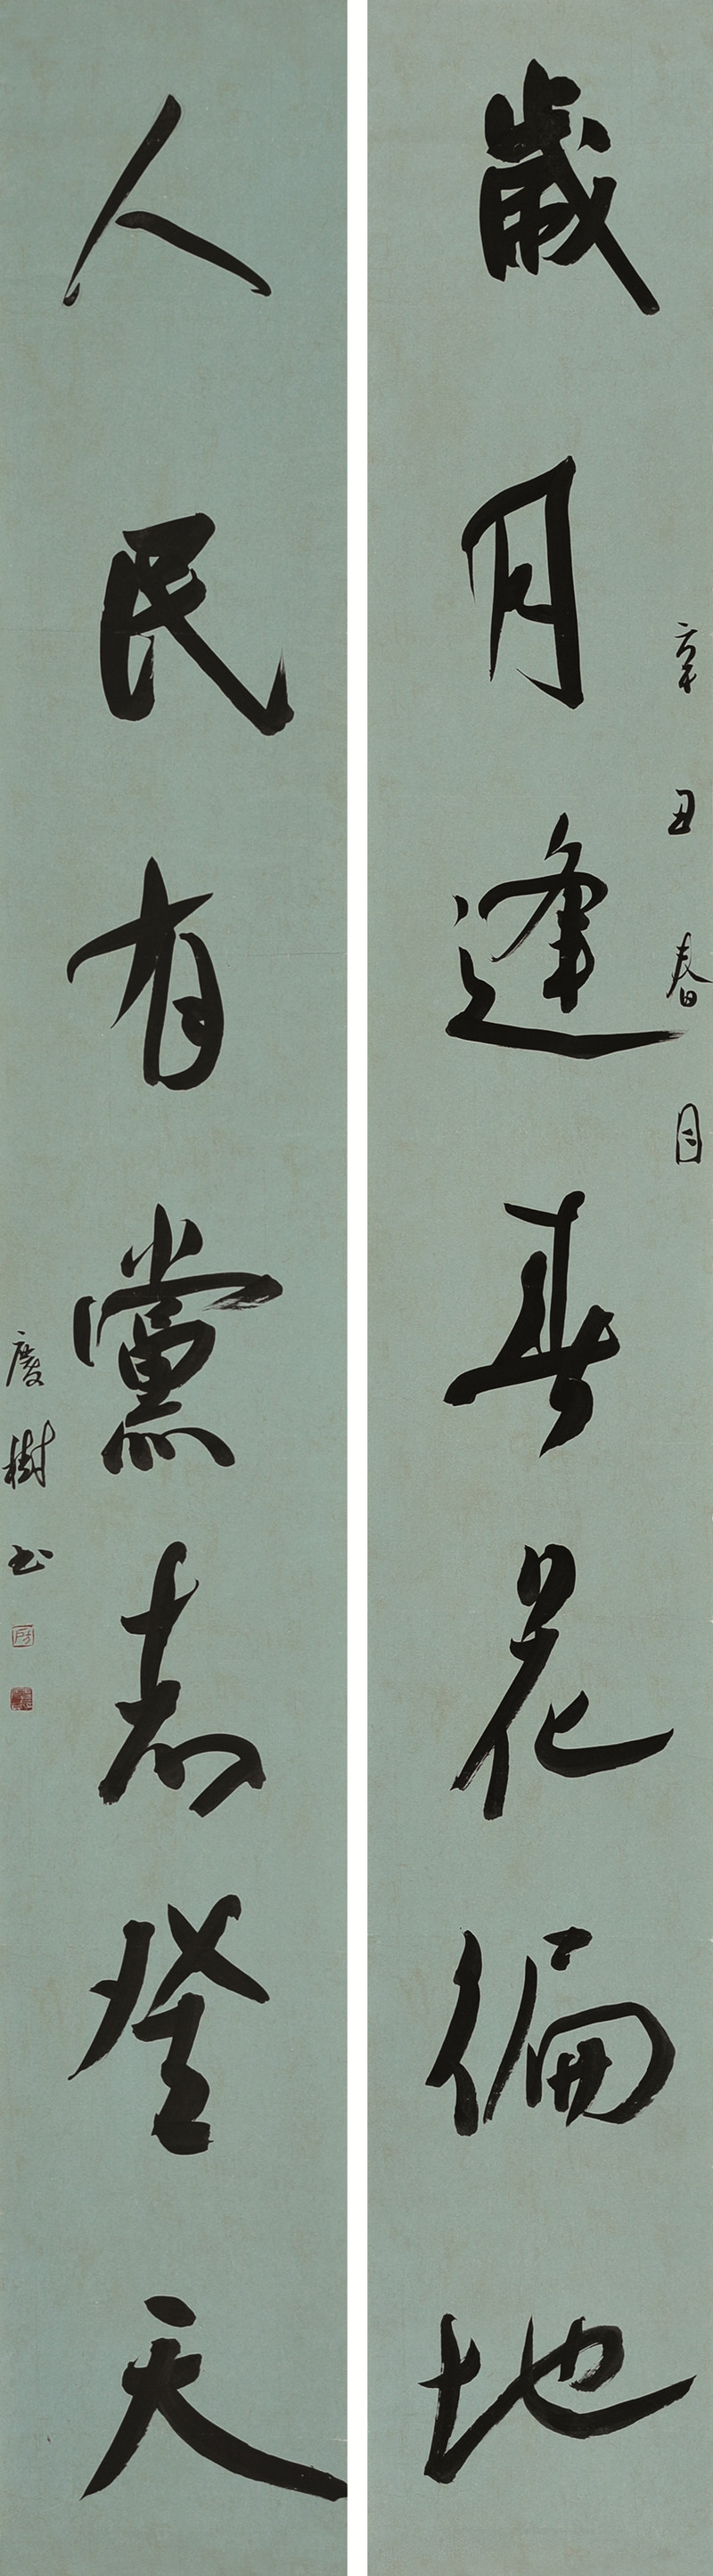 辛丑春月
歲月逢春花徧地
人民有黨志登天
慶樹书